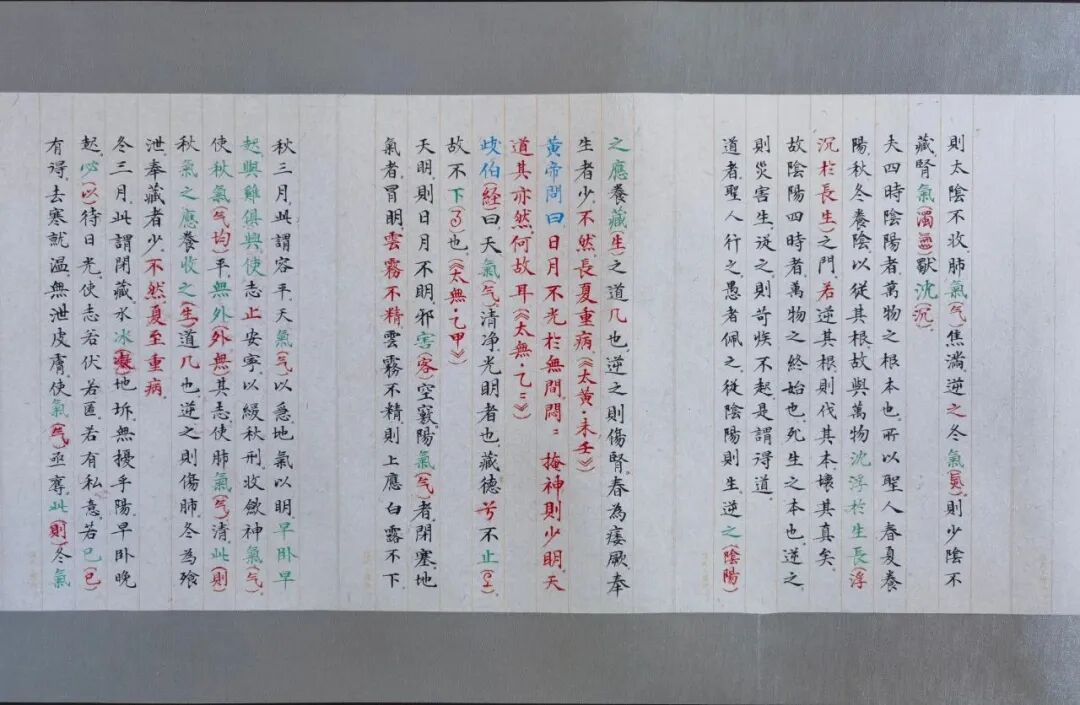 則太陰不收肺氣(气)焦滿逆之冬氣(氣)則少陰不
藏腎氣(濁氣)獸沈(沉)
夫四時陰陽者萬物之根本也所以聖人春夏養
陽秋冬養陰以從其根故與萬物沈浮於生長(浮
沉於長生)之門若逆其根則伐其本壞其真矣
故陰陽四時者萬物之終始也死生之本也逆之
則災害生從之則苛疾不起是謂得道
道者聖人行之愚者佩之從陰陽則生逆之(陰陽)
之應養藏(生)之道几也逆之則傷腎春為痿厥奉
生者少不然長夏重病《太黃·未壬》
黃帝問曰日月不光於無間悶=掩神則少明天
道其亦然何故耳《太無·乙=》
歧伯(经)曰天氣(气)清淨光明者也藏德兮不止(
故不下也《太無·乙甲》
天明則日月不明邪害(客)空竅陽氣(气)者閉塞地
氣者冒明雲霧不精雲霧不精則上應白露不下
秋三月此謂容平天氣(气)以急地氣以明早卧早
起與雞俱興使志止安寧以緩秋刑收斂神氣(气)
使秋氣(气均)平無外(外無)其志使肺氣(气)清此(則)
秋氣之應養收之(生)道几也逆之則傷肺冬為飱
泄奉藏者少不然夏至重病
冬三月此謂閉藏水冰地坼無擾乎陽早卧晚
起必(以)待日光使志若伏若匿若有私意若已(已)
有得去寒就温無泄皮膚使氣(气)亟奪此(則)冬氣